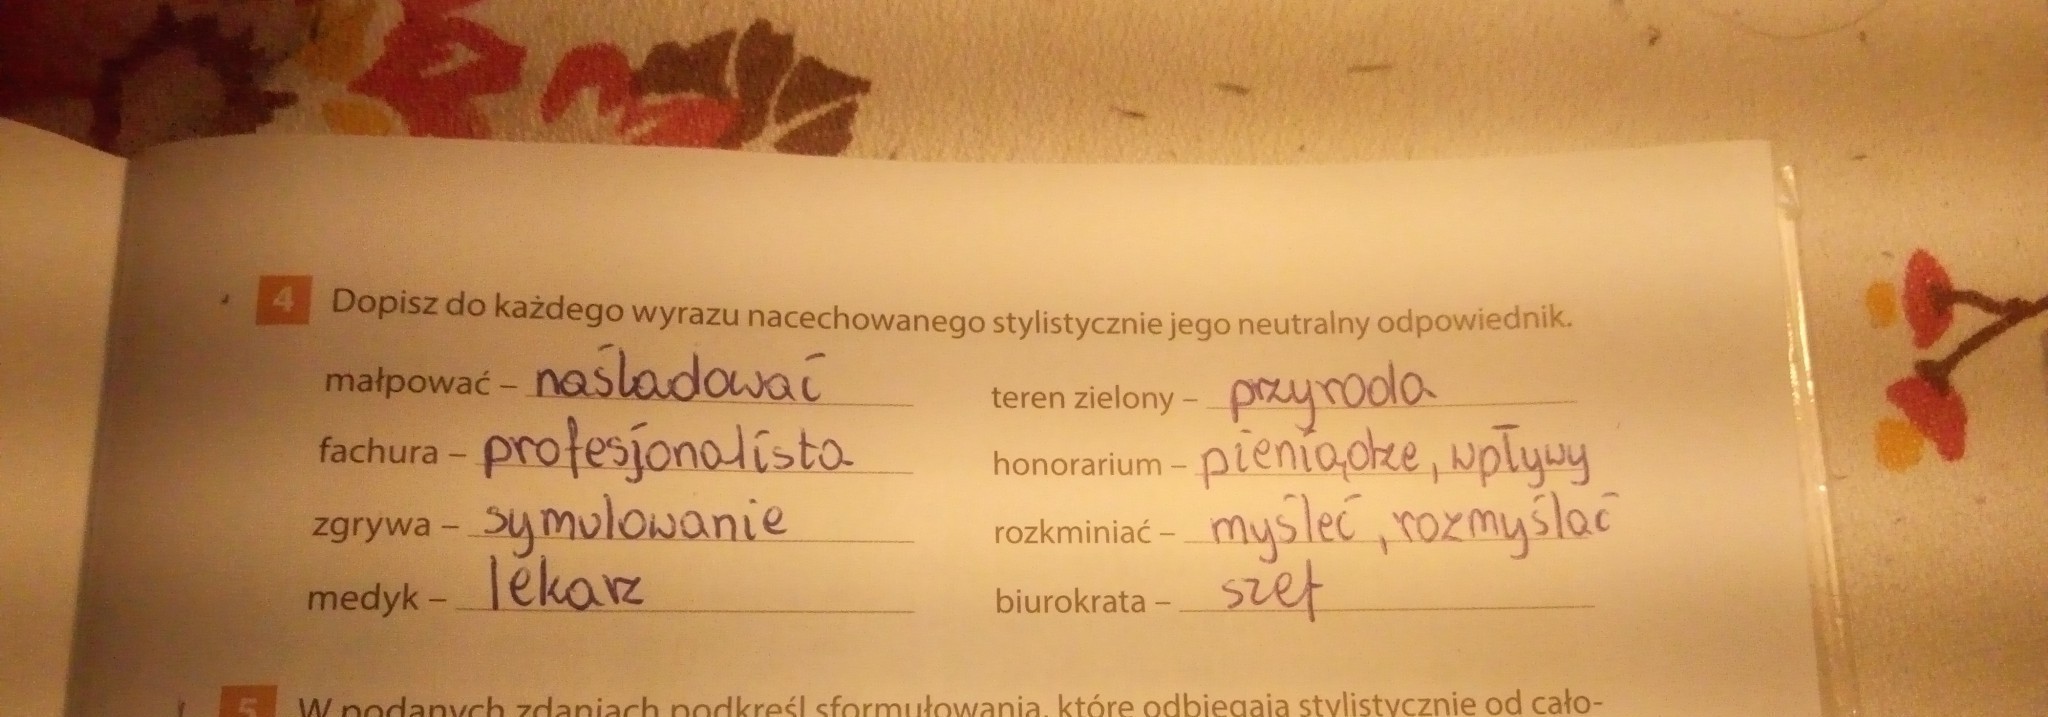 4 Dopisz do każdego wyrazu nacechowanego stylistycznie jego neutralny odpowiednik.
małpować – naśladować
teren zielony – przyroda
fachura – profesjonalista
honorarium – pieniądze, wpływy
zgrywa – symulowanie
rozkminiać – myśleć, rozmyślać
medyk – lekarz
biurokrata – szef
5 W podanych zdaniach podkreśl sformułowania, które odbiegają stylistycznie od cało-